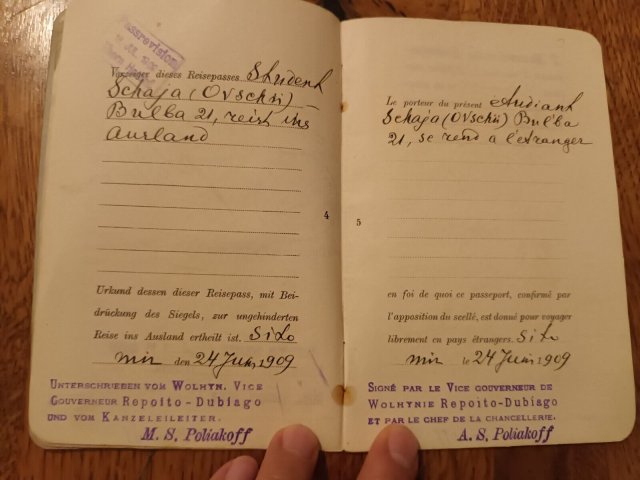 Passrevision
Vorzeiger dieses Reisepasses Student
Schaja (Ovschii)
Bulba 21, reist ins
Ausland
4
Urkund dessen dieser Reisepass, mit Bei-
drückung des Siegels, zur ungehinderten
Reise ins Ausland ertheilt ist.
den 24 Juni 1909
UNTERSCHRIEBEN VOM WOLHYN. VICE
GOUVERNEUR REPOITO-DUBIAGO
UND VOM KANZELEILEITER.
M. S. Poliakoff
Le porteur du présent étudiant
Schaja (Ovschii) Bulba
21, se rend a l'étranger
5
en foi de quoi ce passeport, confirmé par
l'apposition du scellé, est donné pour voyager
librement en pays étrangers.
le 24 Juin 1909
SIGNÉ PAR LE VICE GOUVERNEUR DE
WOLHYNIE REPOITO-DUBIAGO
ET PAR LE CHEF DE LA CHANCELLERIE.
A. S. Poliakoff